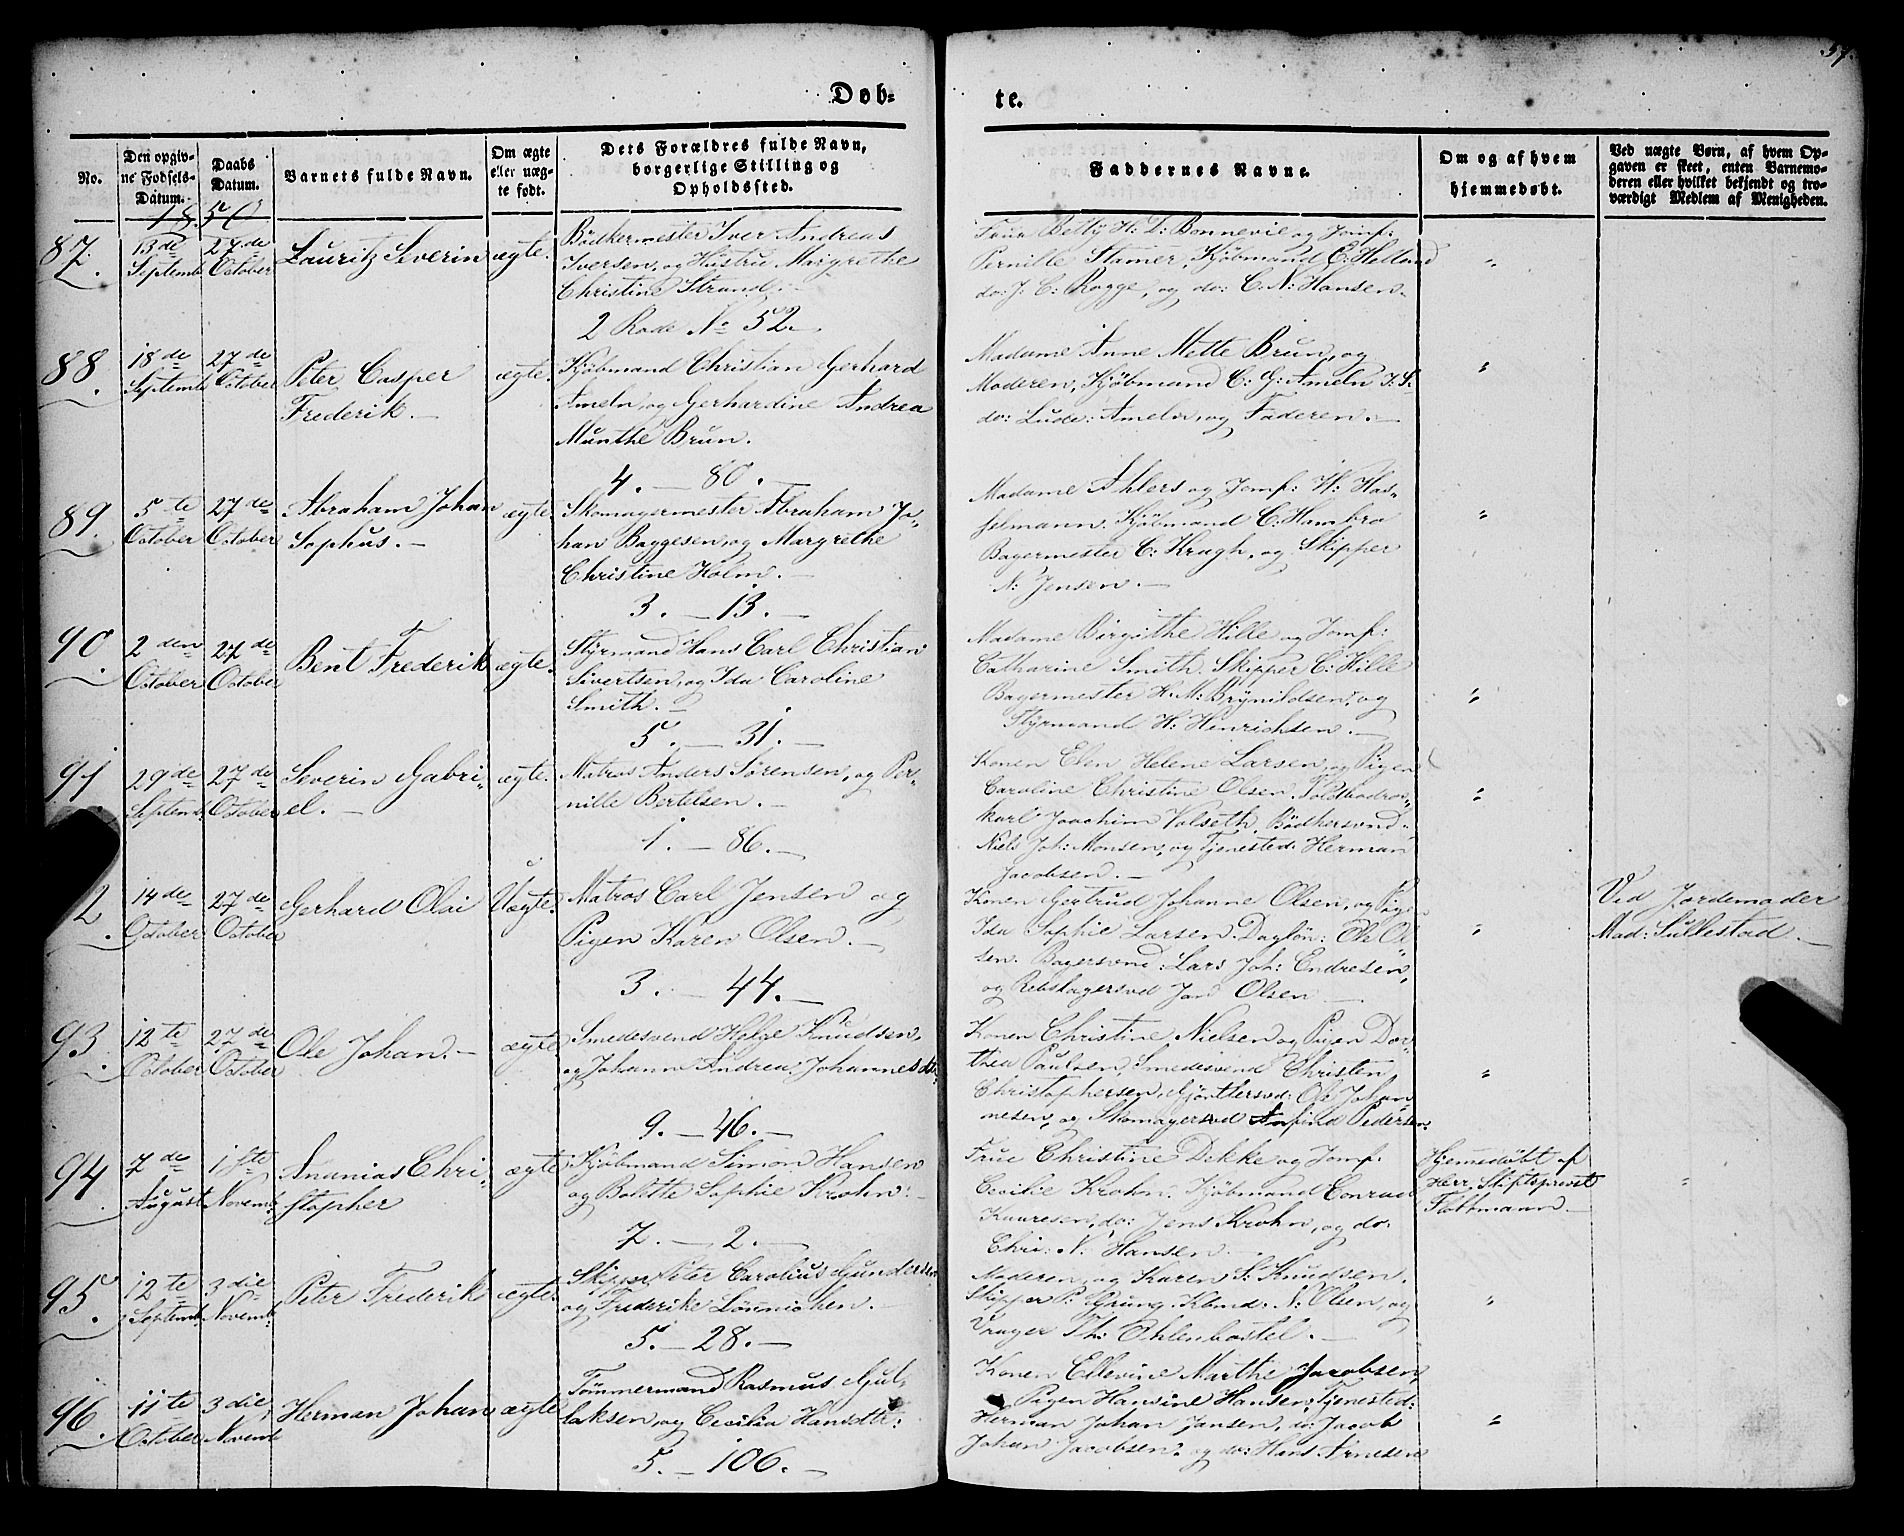 57.
Døb-
te.
No.
Den opgiv-
ne Fødsels-
Datum.
Daabs
Datum.
Barnets fulde Navn.
Om ægte
eller uæg-
te født.
Dets Forældres fulde Navn,
borgerlige Stilling og
Opholdssted.
Faddernes Navne.
Om og af hvem
hjemmedøbt.
Ved uægte Børn, af hvem Op-
gaven er skeet, enten Barnemo-
deren eller hvilket bekjendt og tro-
værdigt Medlem af Menigheden.
1850
87.
13de
Septemb
27de
October
Lauritz Severin
ægte.
Bødkermester Iver Andreas
Iversen, og Hustru Margrethe
Christine Strand. -
2 Rode No 52. -
Frue Betty H. D: Bonnevie og Jomf:
Pernille Stamer, Kjøbmand C. Holland
do: J. C. Rogge, og do: C. N: Hansen.
"
88.
18de
Septemb
27de
October
Peter Casper
Frederik. -
ægte.
Kjøbmand Christian Gerhard
Ameln, og Gerhardine Andrea
Munthe Brun.
4. - 80. -
Madame Anne Mette Brun, og
Moderen, Kjøbmand C: G: Ameln J. S.
do: Lude: Ameln, og Faderen. -
"
89.
5te
October
27de
October
Abraham Johan
Sophus. -
ægte.
Skomagermester Abraham Jo-
han Baggesen, og Margrethe
Christine Holm. -
3. - 13. -
Madame Ahlers og Jomf: W: Has-
selmann. Kjøbmand C. Hambro
Bagermester C: Kragh, og Skipper
N: Jensen. -
"
90.
2den
October
27de
October
Bent Frederik
ægte.
Styrmand Hans Carl Christian
Sivertsen, og Ida Caroline
Smith. -
5. - 31. -
Madame Birgithe Hille og Jomf:
Catharine Smith. Skipper C: Hille
Bagermester H. M: Brynildsen, og
Styrmand H: Hinrichsen. -
"
91
29de
Septemb:
27de
October
Severin Gabri-
el. -
ægte.
Matros Anders Sørensen, og Per-
nille Bertelsen. -
1. - 86. -
Konen Elen Helene Larsen, og Pigen
Caroline Christine Olsen. Toldbodros-
karl Joachim Valseth, Bødkersvend
Niels Joh: Monsen, og Tjenested: Herman
Jacobsen. -
"
2.
14de
October
27de
October.
Gerhard Olai
Uægte.
Matros Carl Jensen og
Pigen Karen Olsen. -
3. - 44. -
Konen Gertrud Johanne Olsen, og Pigen
Ida Sophie Larsen. Dagløn: Ole Ol-
sen. Bagersvend: Lars Joh: Endresen,
og Rebslagersvd Jan Olsen -
"
Ved Jordemoder
Mad: Sullestad. -
93.
12te
October
27de
October
Ole Johan. -
ægte
Smedesvend Helge Knudsen,
og Johanne Andrea Johannesdtr.
9. - 46. -
Konen Christine Nielsen og Pigen Dor-
thea Paulsen, Smedesvend Christen
Christophersen, Gjørtlersvd: Ole Johan-
nesen, og Skomagersvd Anfind Pedersen.
"
94.
7de
August
1ste
Novemb:
Ananias Chri-
stopher
ægte
Kjøbmand Simon Hansen
og Bolette Sophie Krohn. -
7. - 2. -
Frue Christine Dekke og Jomf:
Cecilie Krohn. Kjøbmand Conrad
Kauresen, do: Jens Krohn, og do:
Chri: N: Hansen.
Hjemedøbt af
Herr Stiftsprovst
Flottmann. -
"
95.
12te
Septemb:
3die
Novemb:
Peter Frederik
ægte.
Skipper Peter Carolius Gundersen
og Frederike Lønnichen.
5. - 28. -
Moderen, og Karen S: Knudsen,
Skipper P: Grung, Kbmd: N: Olsen, og
Vrager Th: Ohlenbostel. -
"
96.
11te
October
3die
Novemb
Herman Johan
ægte
Tømmermand Rasmus Gul-
laksen, og Cecilia Hansdtr:
5. - 106. -
Konen Ellevine Marthe Jacobsen
Pigen Hansine Hansen, Tjenested:
Herman Johan Jansen, do: Jacob
Johan Jacobsen, og do: Hans Arnesen
"